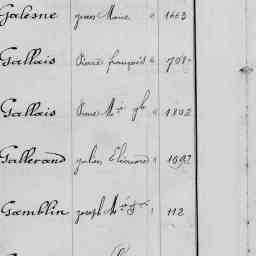 Galesne Jean Marie " 1663
Gallais Pierre françois " 708
Gallais Pierre Mie " 1802
Gallerand Julien Eléonore " 1092
Gamblin Joseph Mie " 112